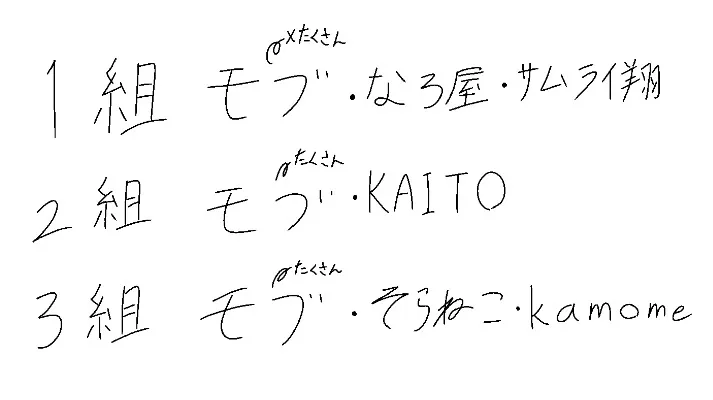 ×たくさん
1組 モブ・なろ屋・サムライ翔
たくさん
2組 モブ・KAITO
たくさん
3組 モブ・そらねこ・kamome